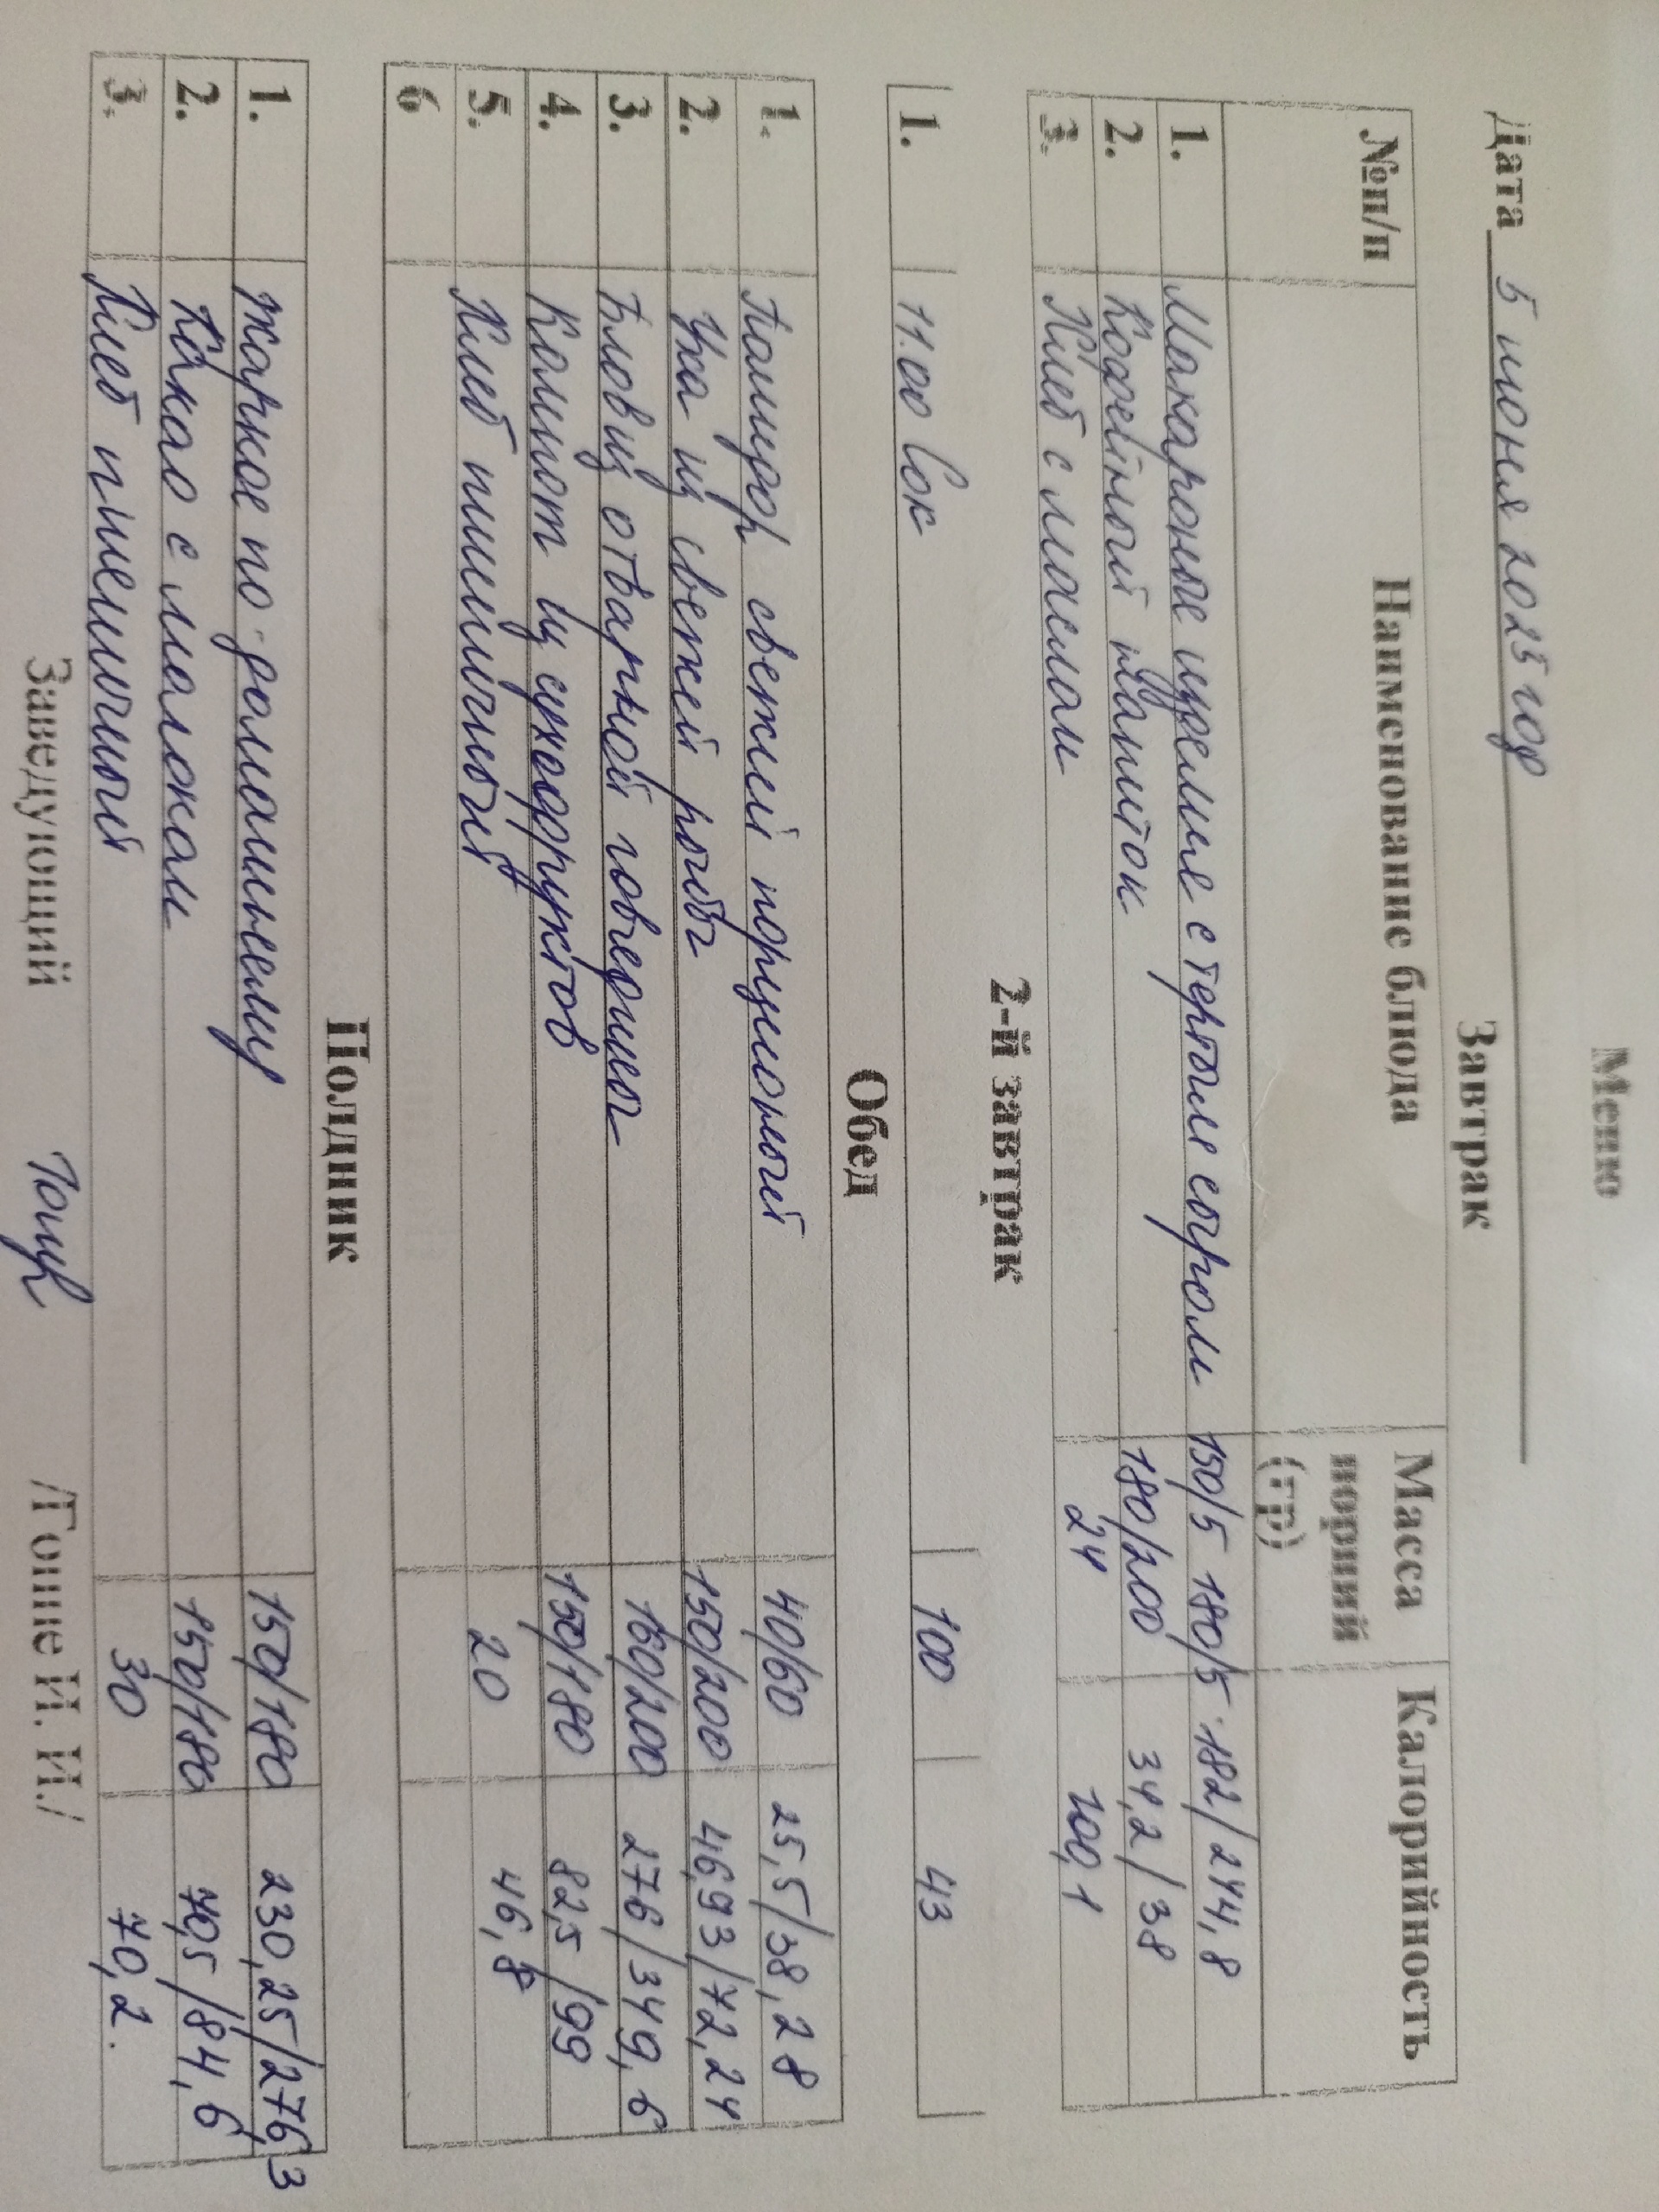 Меню
Дата 5 июня 2025 год
Завтрак
№п/п Наименование блюда Масса порций (гр) Калорийность
1. Макароные изделие с тертыле сыром 150/5 180/5 182/244,8
2. Кофейный напиток 180/200 34,2/38
3. Хлеб с маслом 24 100,1
2-й завтрак
1. 11.00 Сок 100 43
Обед
1. Помидор свежий порционый 40/60 25,5/38,28
2. Уха из свежей рыбы 150/200 46,93/72,24
3. отварной говедины 160/200 276/349,6
4. Компот из сухофруктов 150/180 82,5/99
5. Хлеб пшеничный 20 46,8
6
Полдник
1. Жаркое по-домашнему 150/180 230,25/276,3
2. Какао с молоком 150/180 70,5/84,6
3. Хлеб пшеничный 30 70,2.
Заведующий /Гоппе И. И./